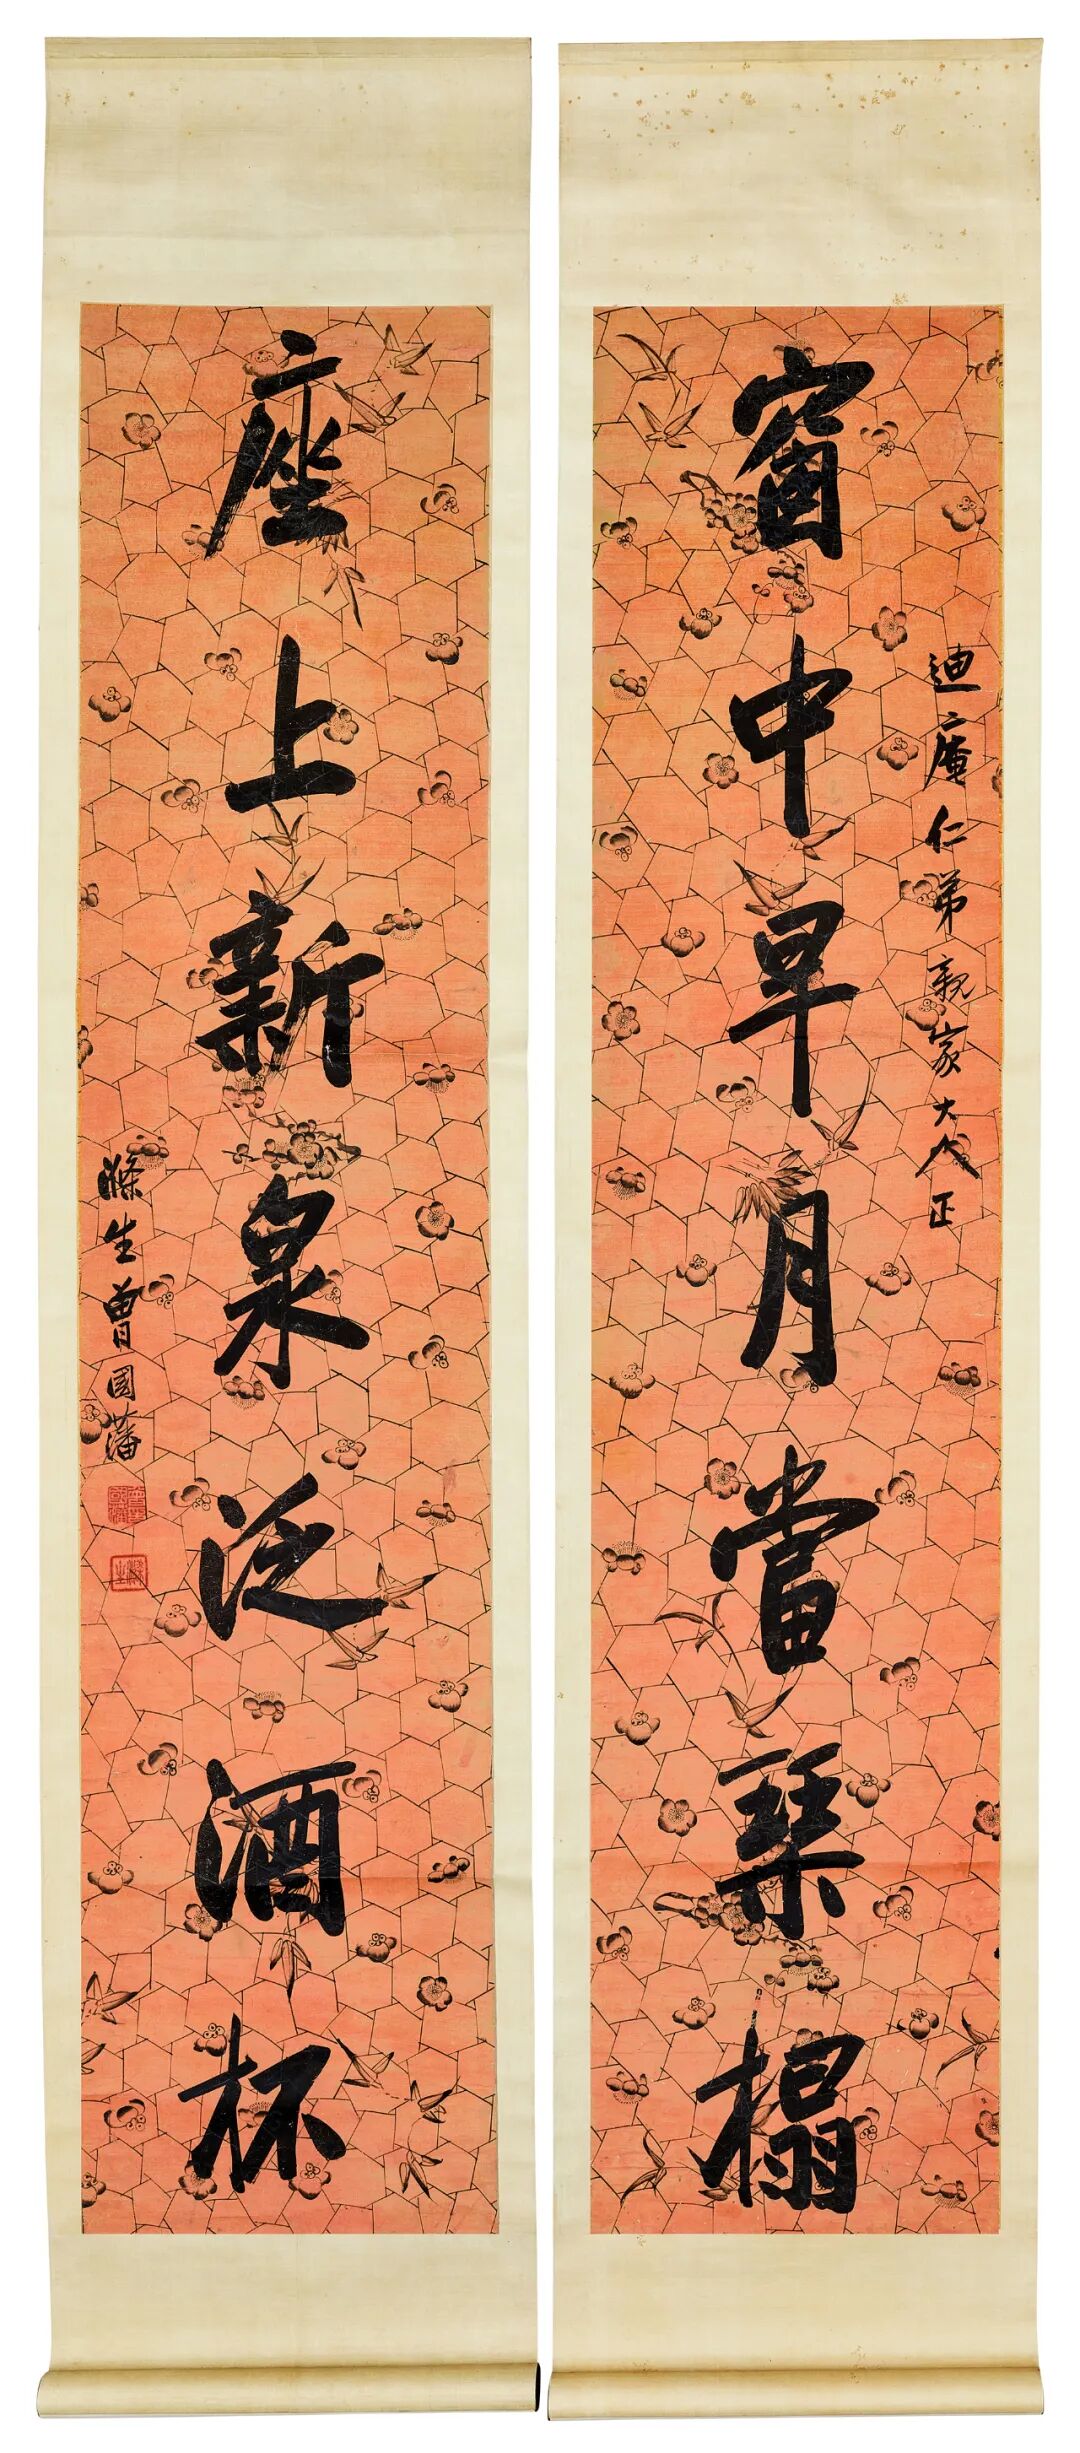 窗中早月當琴榻
迪庵仁弟親家大人正
座上新泉泛酒杯
滌生曾國藩
曾國藩
滌生